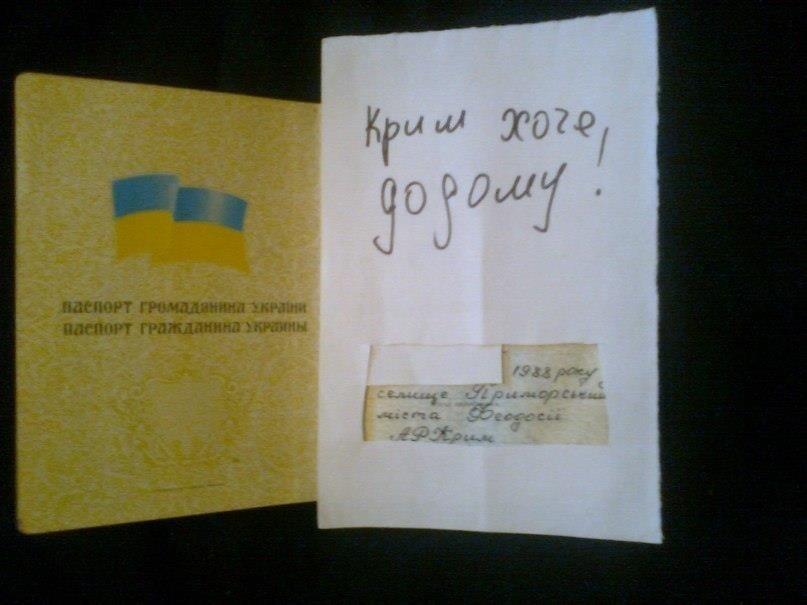 ПАСПОРТ ГРОМАДЯНИНА УКРАЇНИ
ПАСПОРТ ГРАЖДАНИНА УКРАИНЫ
Крим хоче
додому!
1988 року
селище Приморський
міста Феодосії
АР Крим